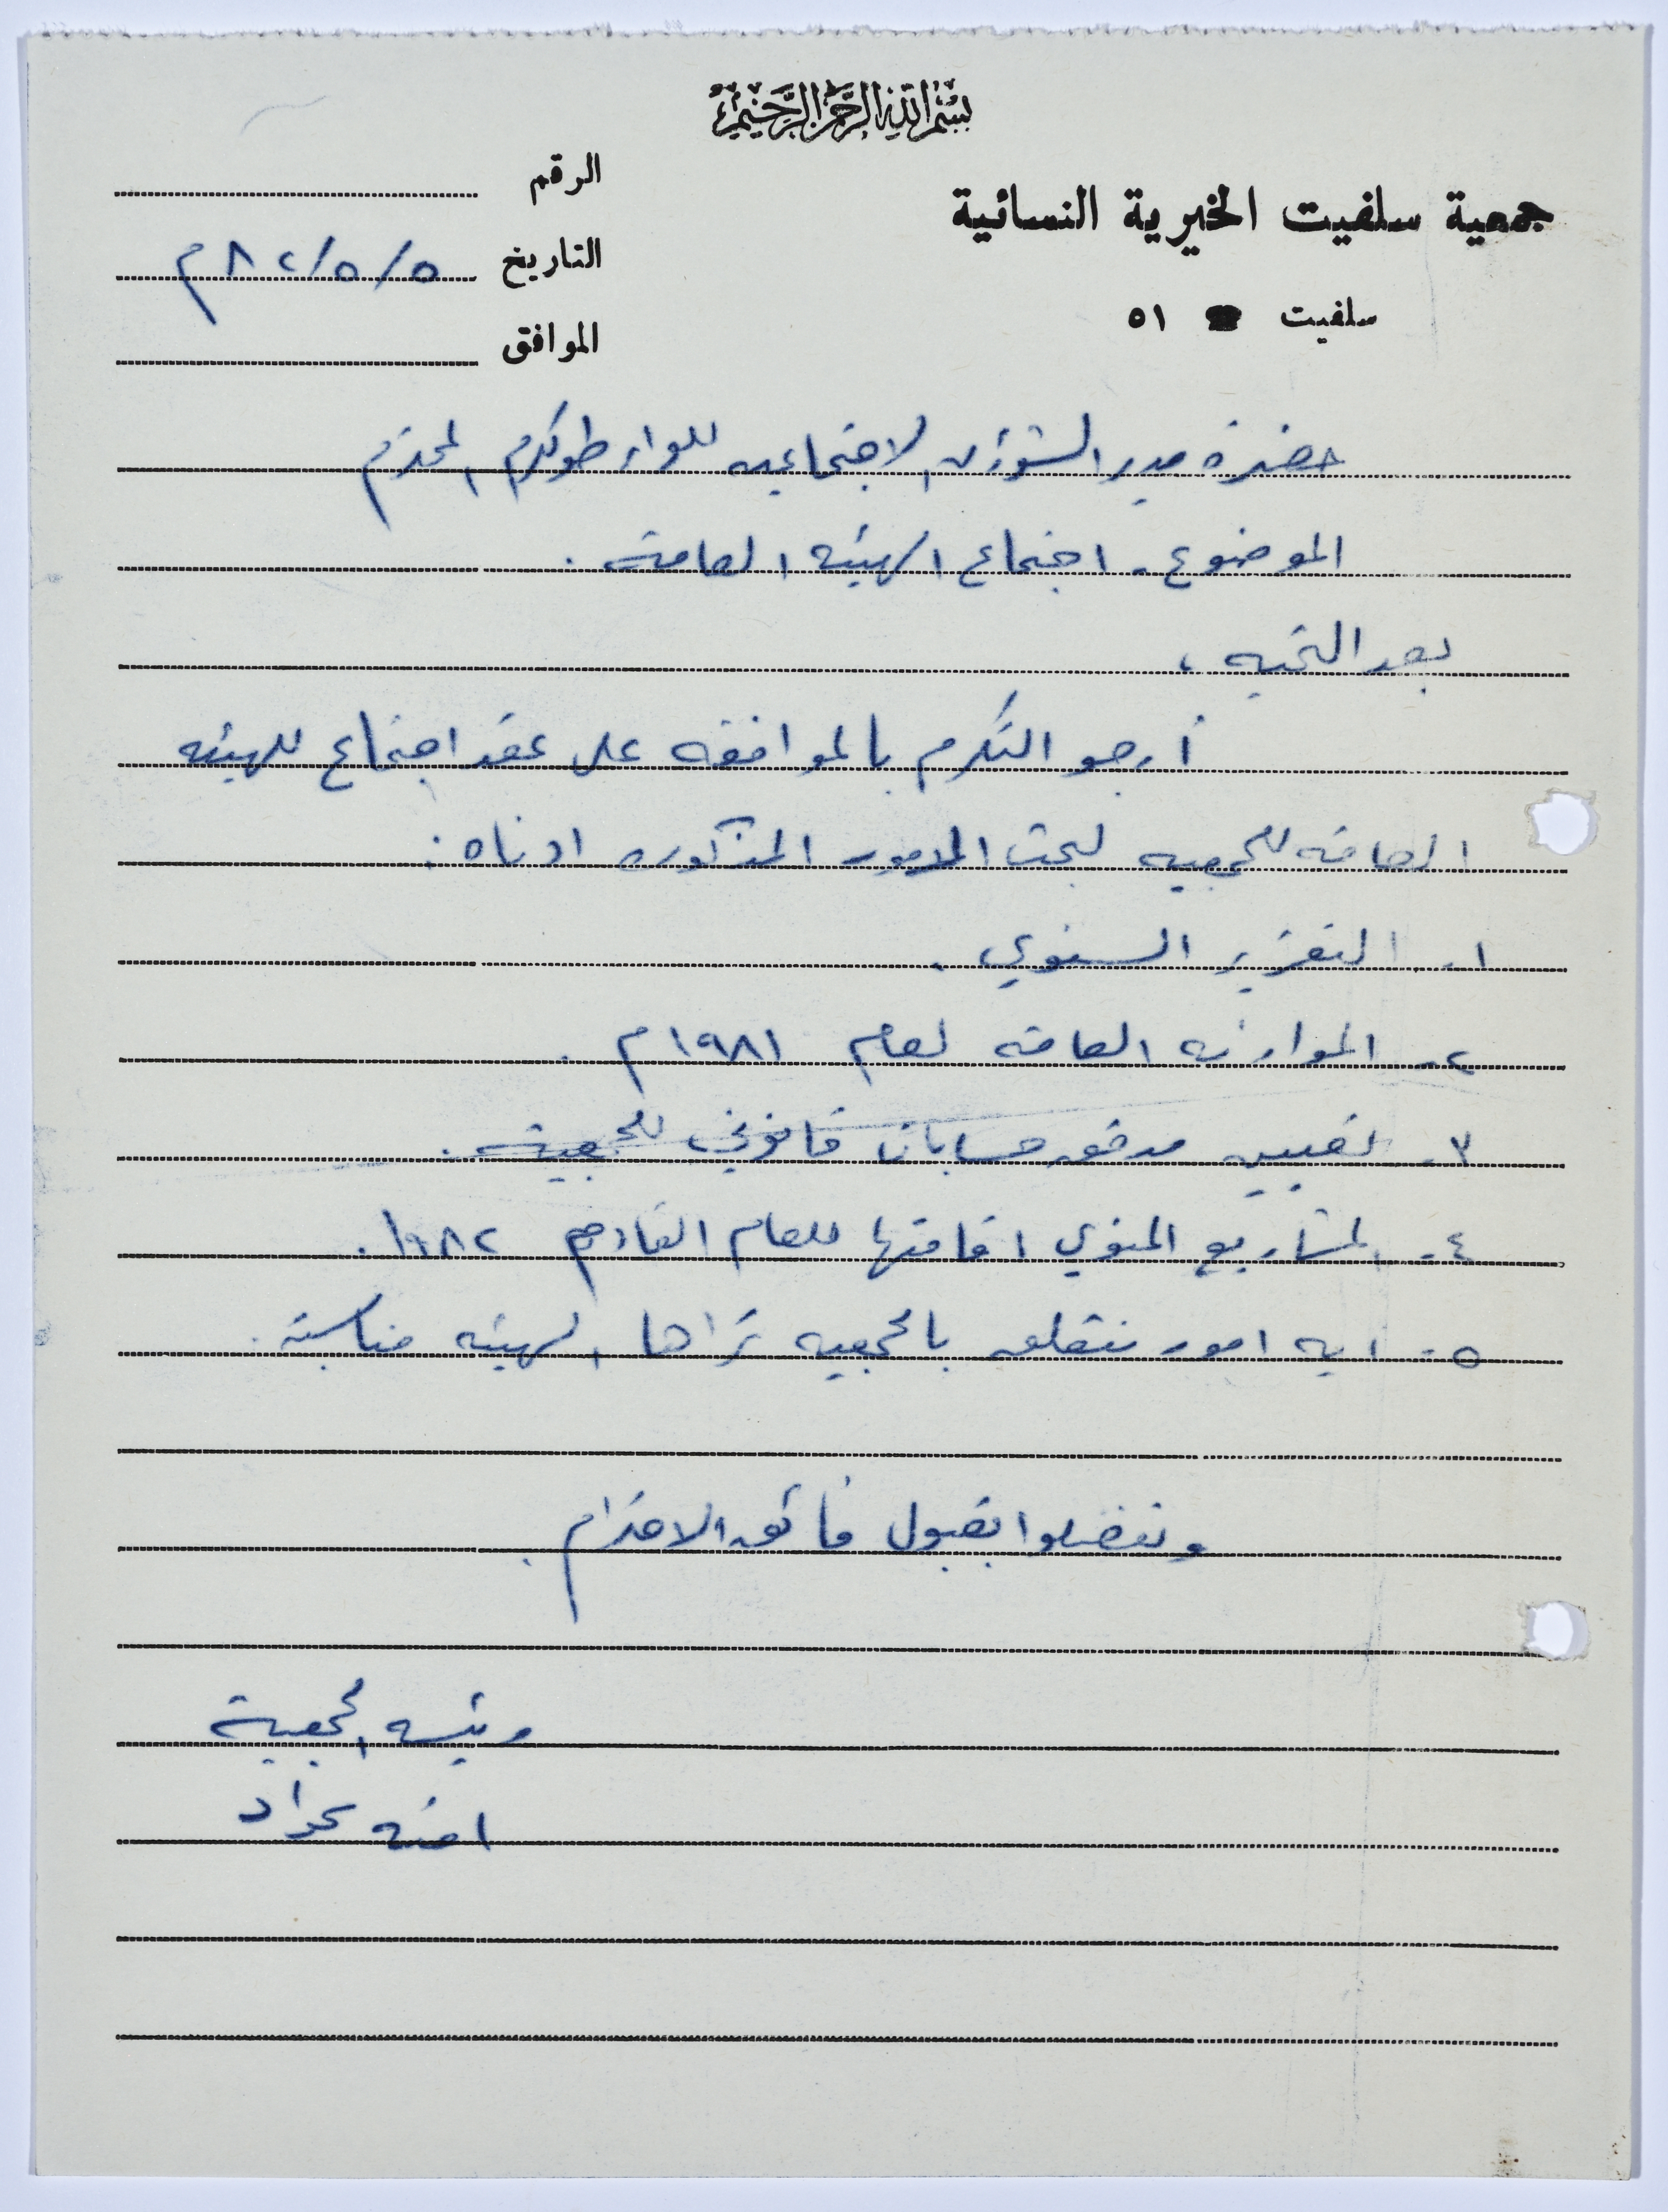 بسم الله الرحمن الرحيم
جمعية سلفيت الخيرية النسائية
سلفيت ☎ ٥١
الرقم
التاريخ ٥/٥/٨٢م
الموافق
حضرة مدير الشؤون الاجتماعيه للواء طولكرم المحترم
الموضوع - اجتماع الهيئه العامة .
بعد التحيه ،
أرجو التكرم بالموافقه على عقد اجتماع للهيئه
العامه للجمعيه لبحث الامور المذكوره ادناه :
١- التقرير السنوي .
٢- الموازنه العامه لعام ١٩٨١م .
٣- تعيين مدقق حسابات قانوني للجمعية .
٤- المشاريع المنوي اقامتها للعام القادم ١٩٨٢ .
٥- ايه امور تتعلق بالجمعيه تراها الهيئه مناسبة .
وتفضلوا بقبول فائق الاحترام .
رئيسه الجمعية
امنه